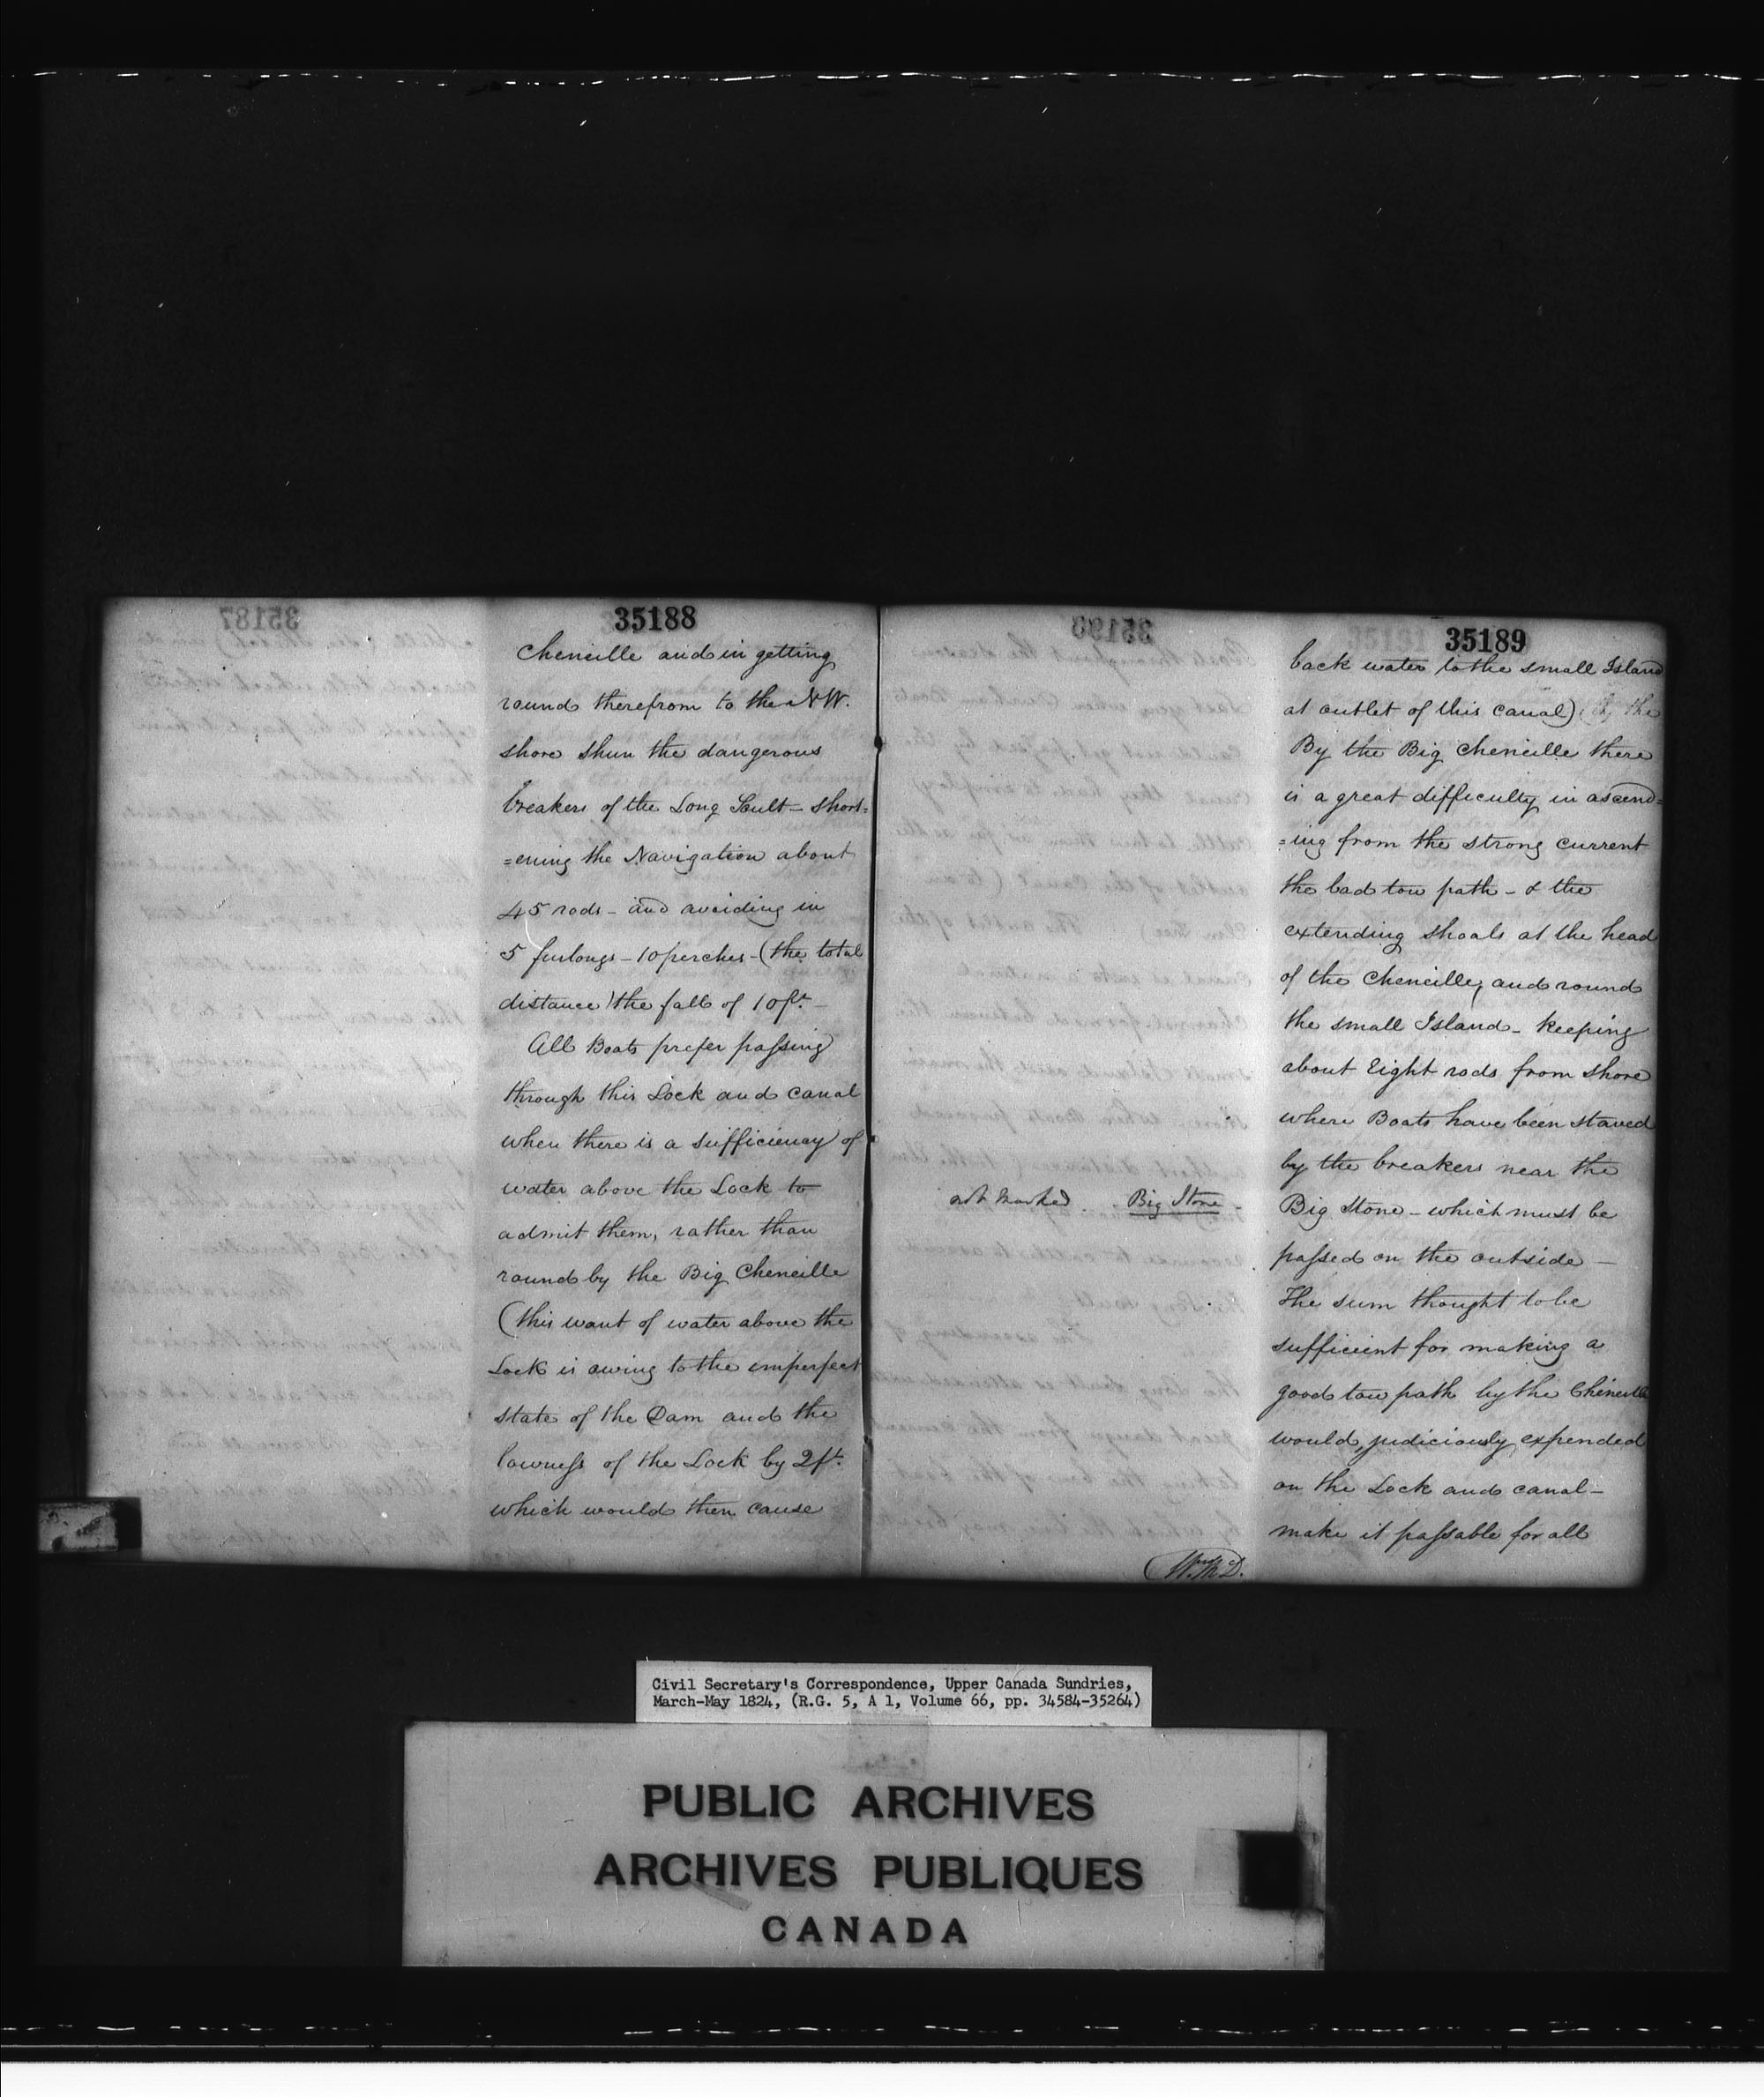 35188
Cheneille and in getting
round therefrom to the NW.
shore shun the dangerous
breakers of the Long Sault - short=
=ening the Navigation about
45 rods - and avoiding in
5 furlongs - 10 perches - (the total
distance) the fall of 10 ft. -
All Boats prefer passing
through this Lock and canal
when there is a sufficiency of
water above the Lock to
admit them, rather than
round by the Big Cheneille
(this want of water above the
Lock is owing to the imperfect
state of the Dam and the
lowness of the Lock by 2 ft.
which would then cause
35189
back water to the small Island
at outlet of this canal)
By the Big Cheneille there
is a great difficulty in ascend=
=ing from the strong current
the bad tow path - & the
extending shoals at the head
of the Cheneille, and round
the small Island - keeping
about Eight rods from shore
where Boats have been staved
by the breakers near the
not marked. Big Stone -
Big Stone - which must be
passed on the outside -
The sum thought to be
sufficient for making a
good tow path by the Cheneille
would, judiciously expended
on the Lock and canal -
make it passable for all
Civil Secretary's Correspondence, Upper Canada Sundries,
March-May 1824, (R.G. 5, A 1, Volume 66, pp. 34584-35264)
PUBLIC ARCHIVES
ARCHIVES PUBLIQUES
CANADA